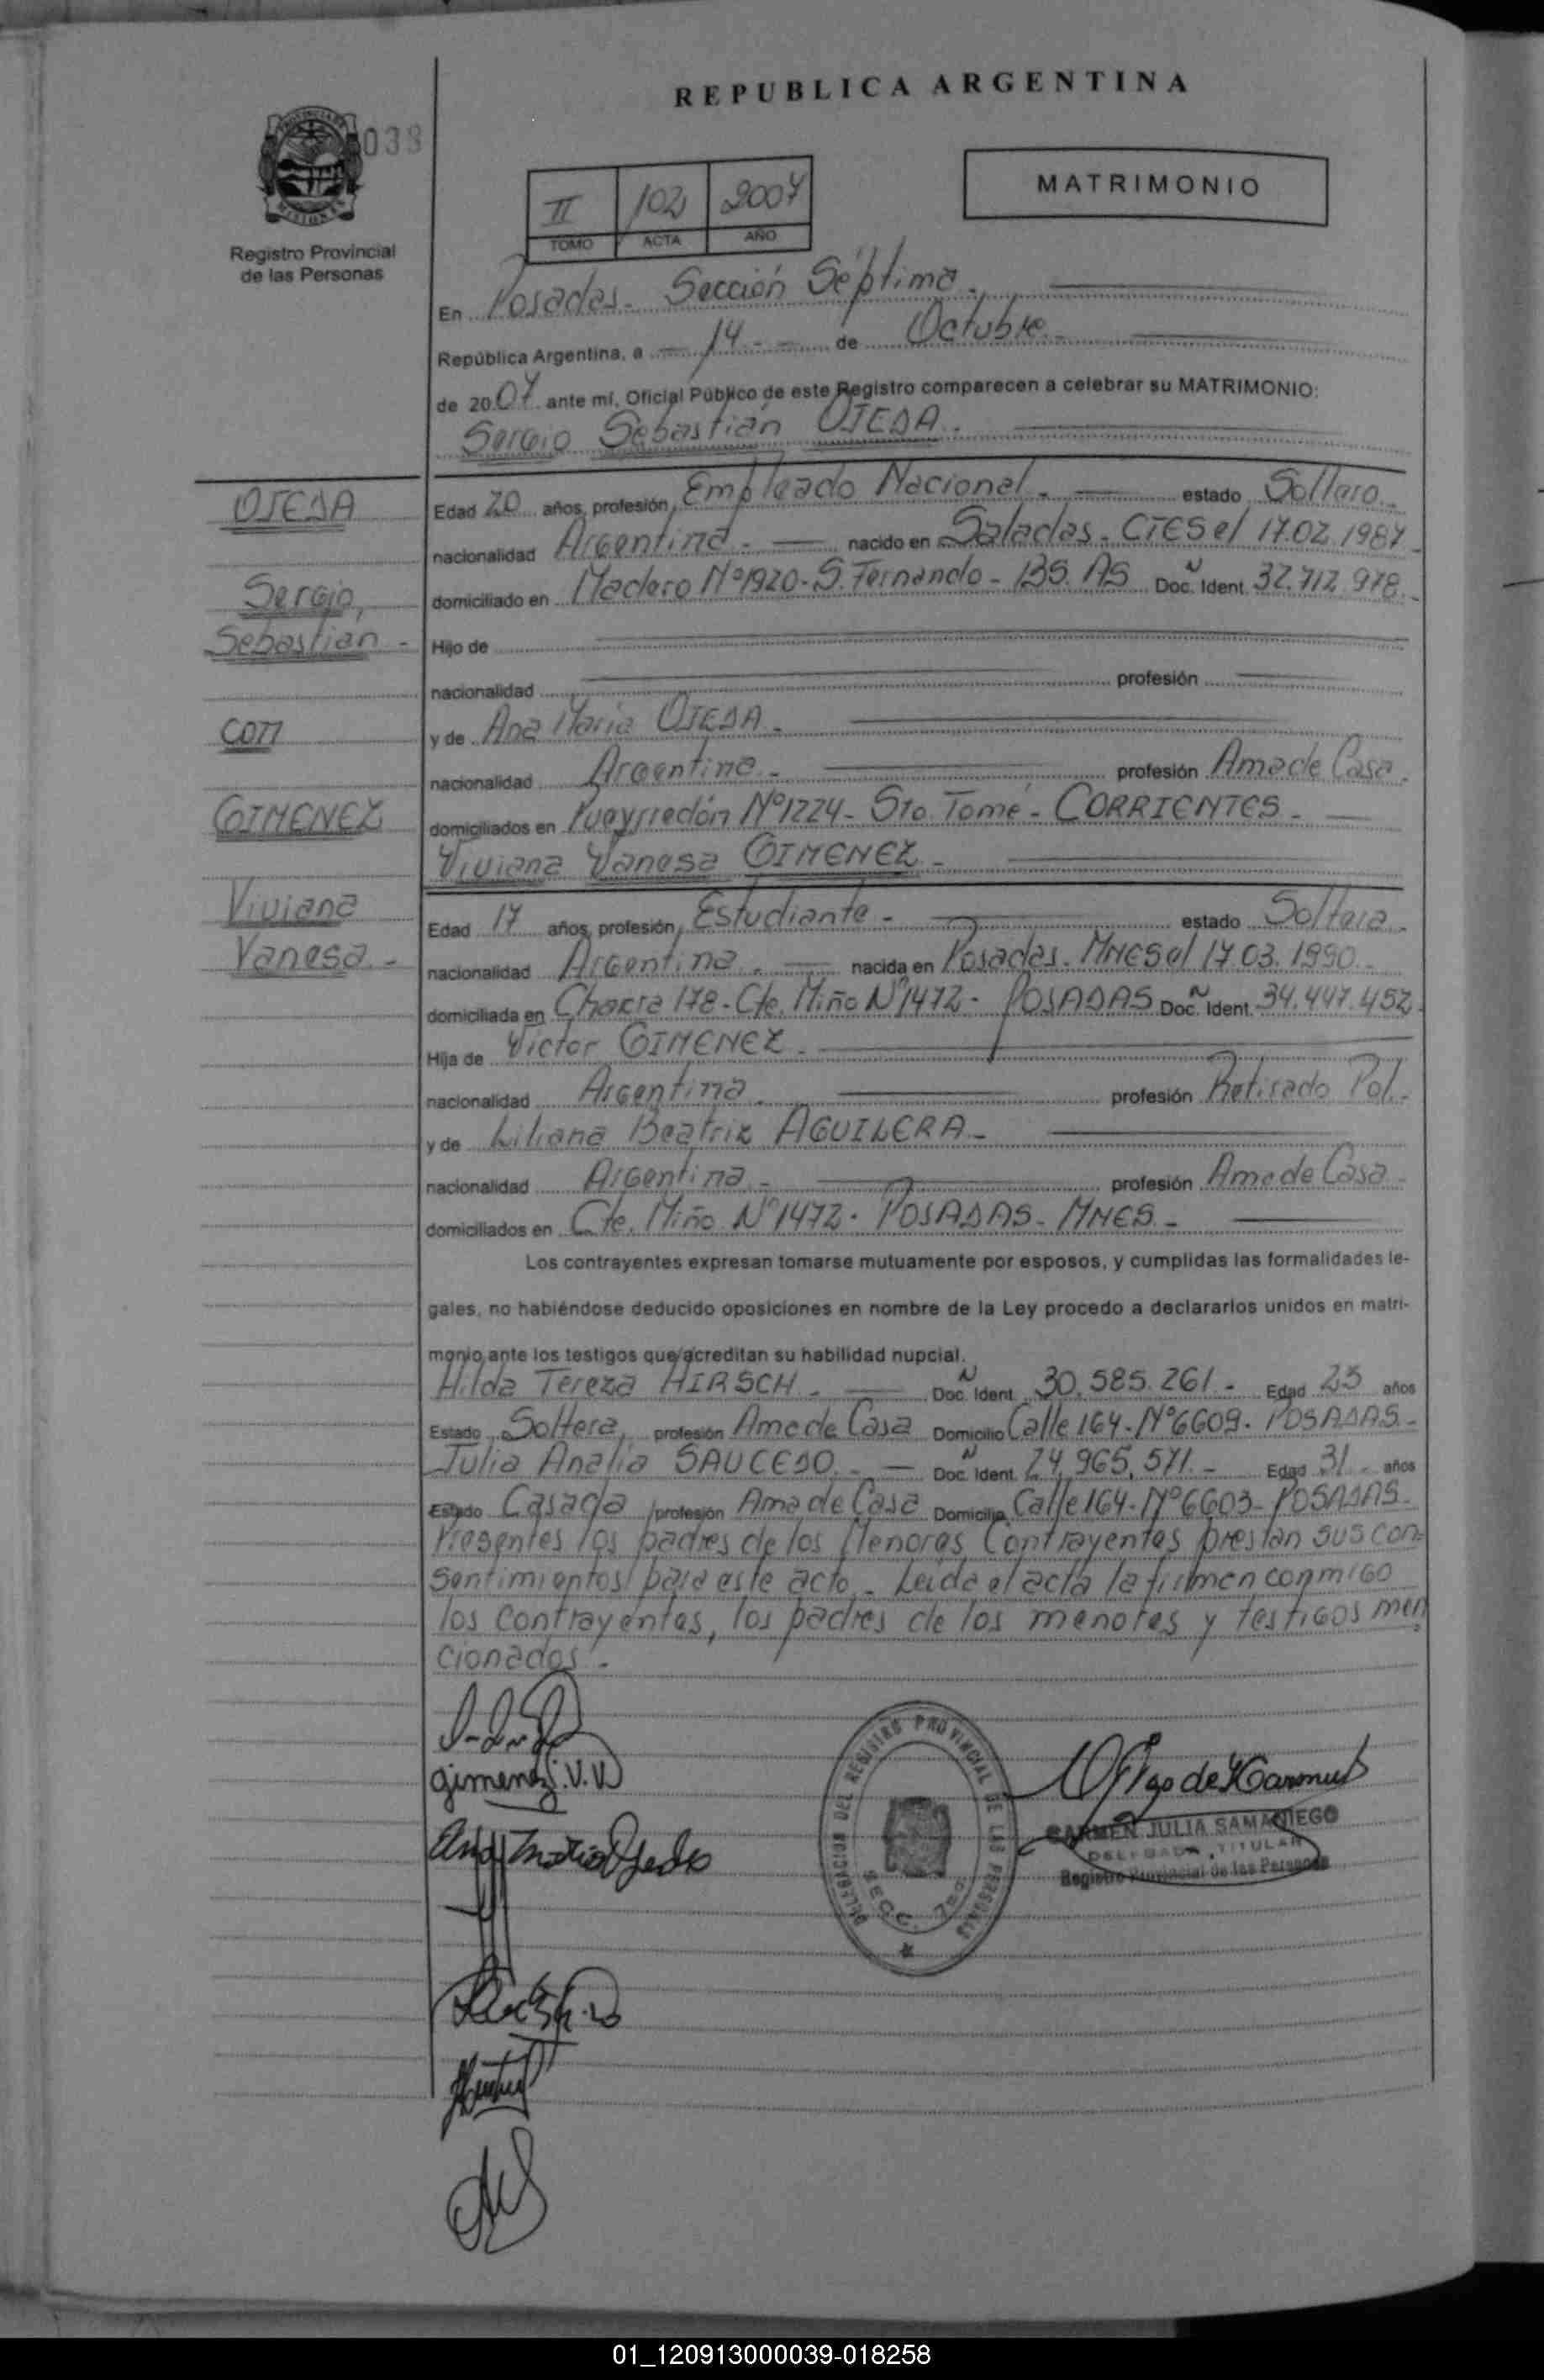 REPUBLICA ARGENTINA
038
MATRIMONIO
II 102 2007
TOMO ACTA AÑO
Registro Provincial
de las Personas
En Posadas - Sección Séptima.
República Argentina, a - 14 - - de Octubre.
de 2007 ante mí, Oficial Público de este Registro comparecen a celebrar su MATRIMONIO:
Sergio Sebastián OJEDA.
OJEDA
Edad 20 años, profesión, Empleado Nacional. - estado Soltero.
nacionalidad Argentina. - nacido en Saladas - CTES el 17.02.1987.
Sergio,
domiciliado en Madero Nº 1920 - S. Fernando - BS. AS Doc. N Ident. 32.712.978.
Sebastian -
Hijo de
nacionalidad profesión
con
y de Ana Maria OJEDA.
nacionalidad Argentina - profesión Ama de Casa.
GIMENEZ
domiciliados en Pueyrredón Nº 1224 - Sto. Tomé - CORRIENTES -
Viviana Vanesa GIMENEZ -
Viviana
Edad 17 años, profesión, Estudiante - estado Soltera.
Vanesa. -
nacionalidad Argentina. - nacida en Posadas. MNES el 17.03.1990.
domiciliada en Chacra 178 - Cte. Miño Nº 1472 - POSADAS Doc. N Ident. 34.447.452
Hija de Victor GIMENEZ.
nacionalidad Argentina. profesión Retirado Pol.
y de Liliana Beatriz AGUILERA -
nacionalidad Argentina. - profesión Ama de Casa
domiciliados en Cte. Miño Nº 1472 - POSADAS - MNES. -
Los contrayentes expresan tomarse mutuamente por esposos, y cumplidas las formalidades le-
gales, no habiéndose deducido oposiciones en nombre de la Ley procedo a declararlos unidos en matri-
monio ante los testigos que acreditan su habilidad nupcial.
Hilda Tereza HIRSCH. - Doc. N Ident. 30.585.261 - Edad 23 años
Estado Soltera, profesión Ama de Casa Domicilio Calle 164 - Nº 6609 - POSADAS -
Julia Analia SAUCEDO. - Doc. N Ident. 24.965.571. - Edad 31 - años
Estado Casada profesión Ama de Casa Domicilio Calle 164 - Nº 6603 - POSADAS -
Presentes los padres de los Menores Contrayentes prestan sus con=
sentimientos para este acto. - Leida el acta la firman conmigo
los contrayentes, los padres de los menores y testigos men
cionados. -
gimenez. V. V
Ana Maria Ojeda
DELEGACION DEL REGISTRO PROVINCIAL DE LAS PERSONAS
SECC. 7ma
CARMEN JULIA SAMANIEGO
DELEGADA TITULAR
Registro Provincial de las Personas
01_120913000039-018258